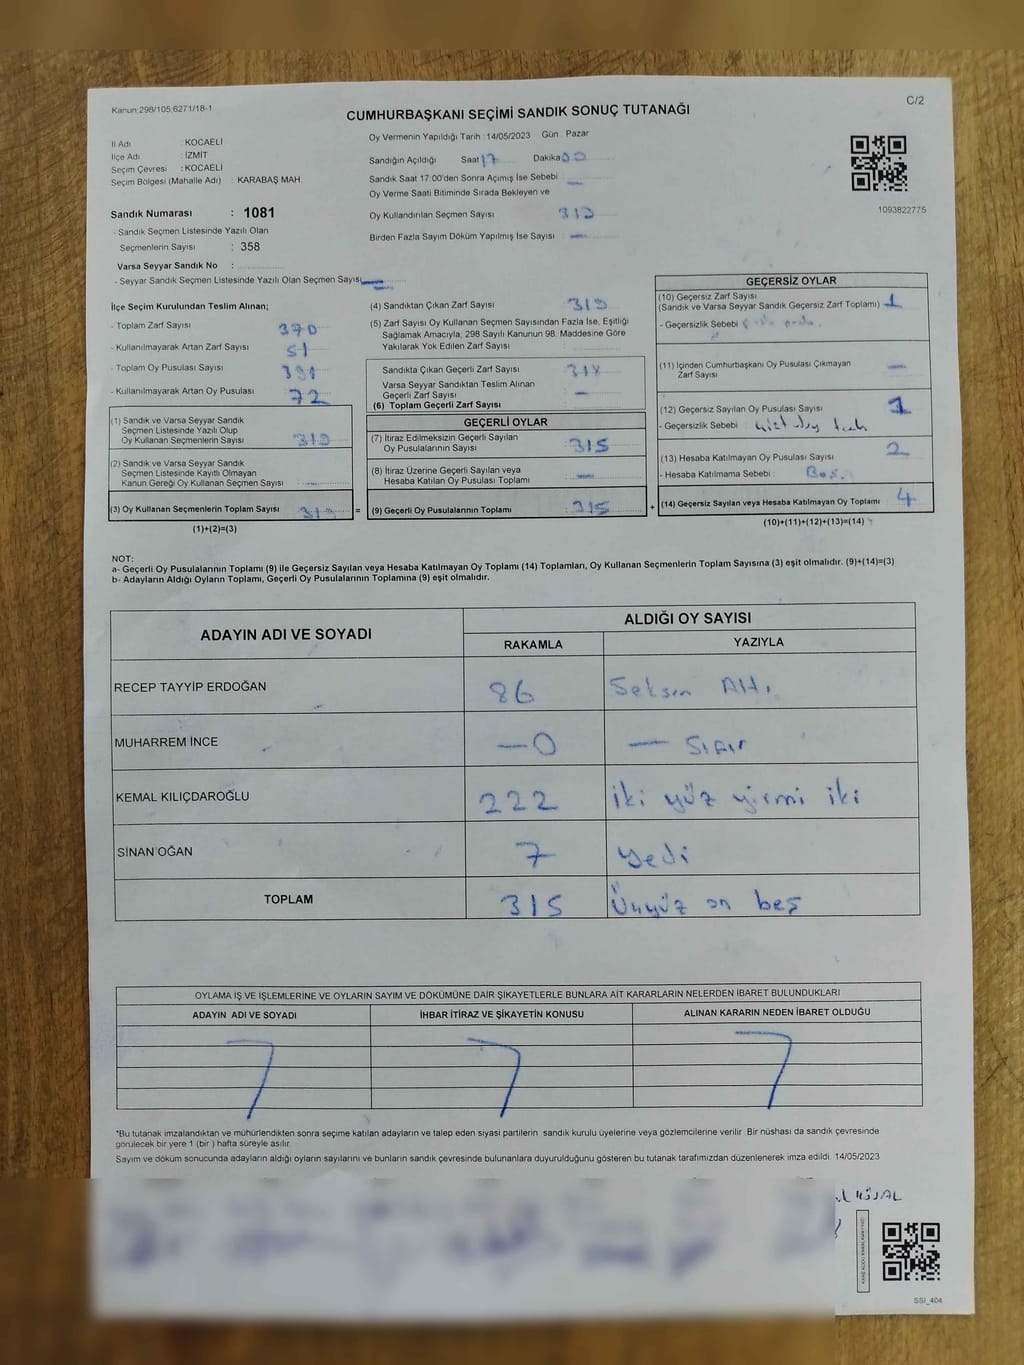 Kanun:298/105;6271/18-1
C/2
CUMHURBAŞKANI SEÇİMİ SANDIK SONUÇ TUTANAĞI
İl Adı KOCAELİ
İlçe Adı : İZMİT
Seçim Çevresi : KOCAELİ
Seçim Bölgesi (Mahalle Adı) : KARABAŞ MAH.
Sandık Numarası : 1081
- Sandık Seçmen Listesinde Yazılı Olan
Seçmenlerin Sayısı : 358
Varsa Seyyar Sandık No :
- Seyyar Sandık Seçmen Listesinde Yazılı Olan Seçmen Sayısı —
Oy Vermenin Yapıldığı Tarih :14/05/2023 Gün : Pazar
Sandığın Açıldığı Saat 17 Dakika 00
Sandık Saat 17:00'den Sonra Açımış İse Sebebi —
Oy Verme Saati Bitiminde Sırada Bekleyen ve
Oy Kullandırılan Seçmen Sayısı
Birden Fazla Sayım Döküm Yapılmış İse Sayısı —
1093822775
İlçe Seçim Kurulundan Teslim Alınan;
- Toplam Zarf Sayısı 370
- Kullanılmayarak Artan Zarf Sayısı 51
- Toplam Oy Pusulası Sayısı 391
- Kullanılmayarak Artan Oy Pusulası 72
(1) Sandık ve Varsa Seyyar Sandık
Seçmen Listesinde Yazılı Olup
Oy Kullanan Seçmenlerin Sayısı 319
(2) Sandık ve Varsa Seyyar Sandık
Seçmen Listesinde Kayıtlı Olmayan
Kanun Gereği Oy Kullanan Seçmen Sayısı —
(3) Oy Kullanan Seçmenlerin Toplam Sayısı 319 =
(1)+(2)=(3)
(4) Sandıktan Çıkan Zarf Sayısı 319
(5) Zarf Sayısı Oy Kullanan Seçmen Sayısından Fazla İse, Eşitliği
Sağlamak Amacıyla, 298 Sayılı Kanunun 98. Maddesine Göre
Yakılarak Yok Edilen Zarf Sayısı
Sandıkta Çıkan Geçerli Zarf Sayısı 318
Varsa Seyyar Sandıktan Teslim Alınan
Geçerli Zarf Sayısı —
(6) Toplam Geçerli Zarf Sayısı
GEÇERLİ OYLAR
(7) İtiraz Edilmeksizin Geçerli Sayılan
Oy Pusulasının Sayısı 315
(8) İtiraz Üzerine Geçerli Sayılan veya
Hesaba Katılan Oy Pusulası Toplamı —
(9) Geçerli Oy Pusulalarının Toplamı 315 +
GEÇERSİZ OYLAR
(10) Geçersiz Zarf Sayısı
(Sandık ve Varsa Seyyar Sandık Geçersiz Zarf Toplamı) 1
- Geçersizlik Sebebi
(11) İçinden Cumhurbaşkanı Oy Pusulası Çıkmayan
Zarf Sayısı —
(12) Geçersiz Sayılan Oy Pusulası Sayısı 1
- Geçersizlik Sebebi
(13) Hesaba Katılmayan Oy Pusulası Sayısı 2
- Hesaba Katılmama Sebebi Boş.
(14) Geçersiz Sayılan veya Hesaba Katılmayan Oy Toplamı 4
(10)+(11)+(12)+(13)=(14)
NOT:
a- Geçerli Oy Pusulalarının Toplamı (9) ile Geçersiz Sayılan veya Hesaba Katılmayan Oy Toplamı (14) Toplamları, Oy Kullanan Seçmenlerin Toplam Sayısına (3) eşit olmalıdır. (9)+(14)=(3)
b- Adayların Aldığı Oyların Toplamı, Geçerli Oy Pusulalarının Toplamına (9) eşit olmalıdır.
ADAYIN ADI VE SOYADI ALDIĞI OY SAYISI
RAKAMLA YAZIYLA
RECEP TAYYİP ERDOĞAN 86 Seksen Altı
MUHARREM İNCE —0 — Sıfır
KEMAL KILIÇDAROĞLU 222 iki yüz yirmi iki
SİNAN OĞAN 7 Yedi
TOPLAM 315 Üçyüz on beş
OYLAMA İŞ VE İŞLEMLERİNE VE OYLARIN SAYIM VE DÖKÜMÜNE DAİR ŞİKAYETLERLE BUNLARA AİT KARARLARIN NELERDEN İBARET BULUNDUKLARI
ADAYIN ADI VE SOYADI İHBAR İTİRAZ VE ŞİKAYETİN KONUSU ALINAN KARARIN NEDEN İBARET OLDUĞU
*Bu tutanak imzalandıktan ve mühürlendikten sonra seçime katılan adayların ve talep eden siyasi partilerin sandık kurulu üyelerine veya gözlemcilerine verilir .Bir nüshası da sandık çevresinde
görülecek bir yere 1 (bir ) hafta süreyle asılır.
Sayım ve döküm sonucunda adayların aldığı oyların sayılarını ve bunların sandık çevresinde bulunanlara duyurulduğunu gösteren bu tutanak tarafımızdan düzenlenerek imza edildi. 14/05/2023
SSI_404